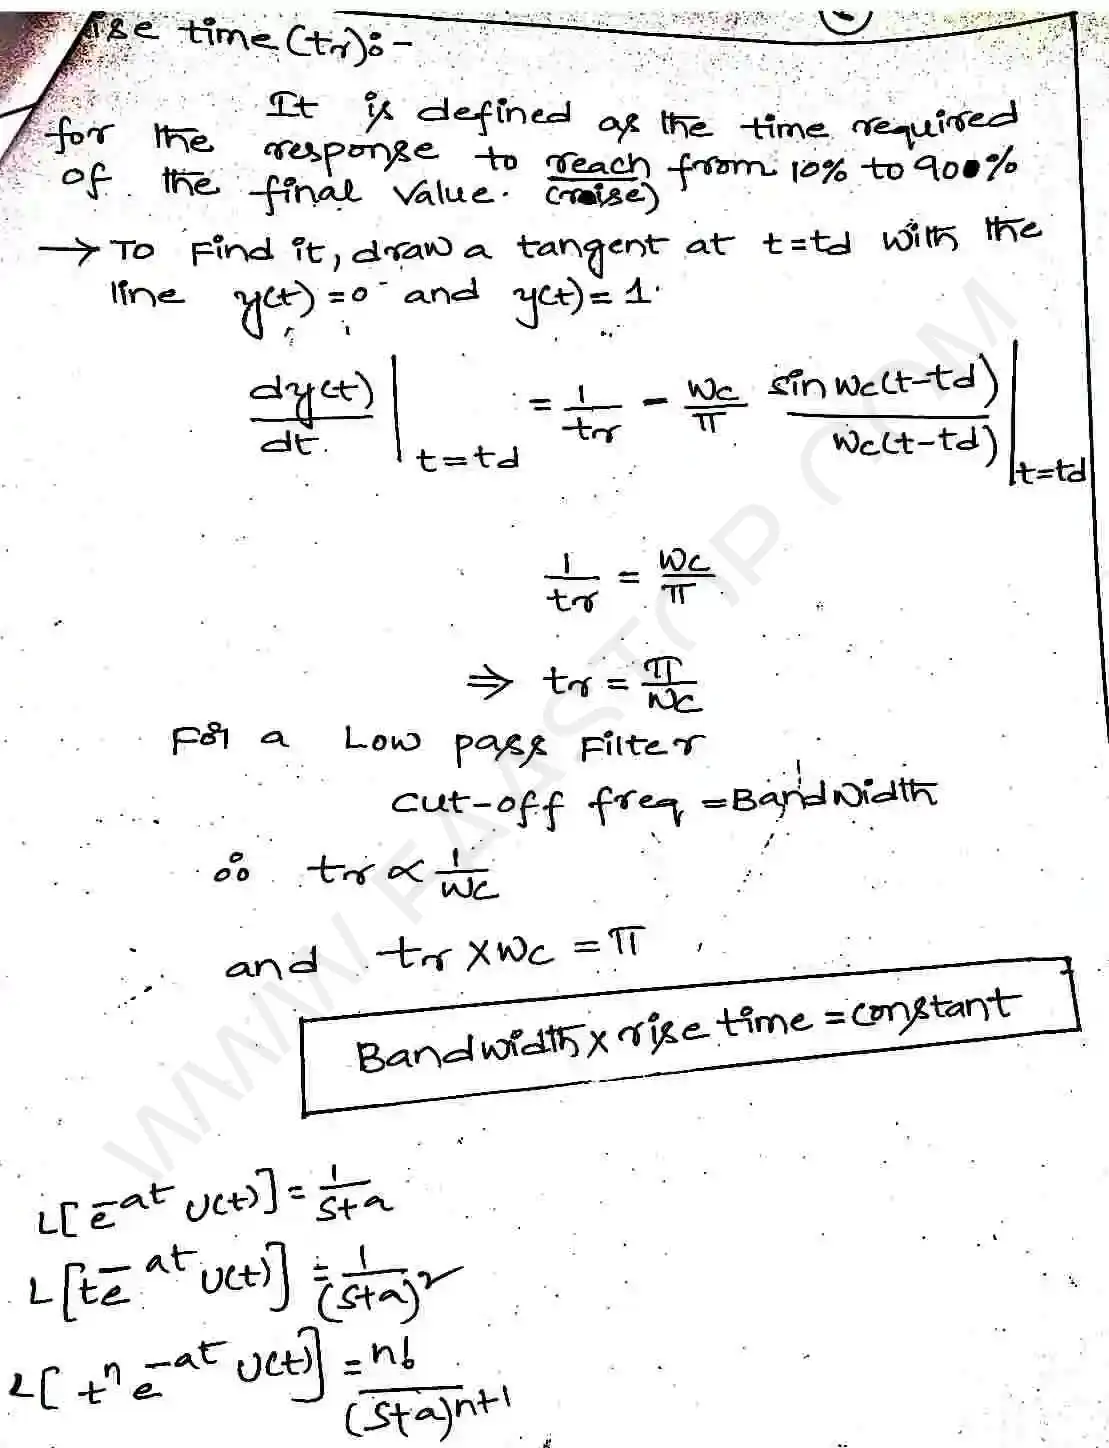 ise time (tr):-
It is defined as the time required
for the response to reach from 10% to 900%
of the final value. (raise)
→ To Find it, draw a tangent at t=td with the
line y(t) = 0 and y(t) = 1.
dy(t)/dt |t=td = 1/tr - wc/π sin wc(t-td)/wc(t-td) |t=td
1/tr = wc/π
⇒ tr = π/wc
For a Low pass Filter
cut-off freq = Bandwidth
∴ tr ∝ 1/wc
and tr x wc = π
Bandwidth x rise time = constant
L[e^-at u(t)] = 1/s+a
L[te^-at u(t)] = 1/(s+a)^2
L[t^n e^-at u(t)] = n!/(s+a)^n+1
WWW.FAASTOP.COM